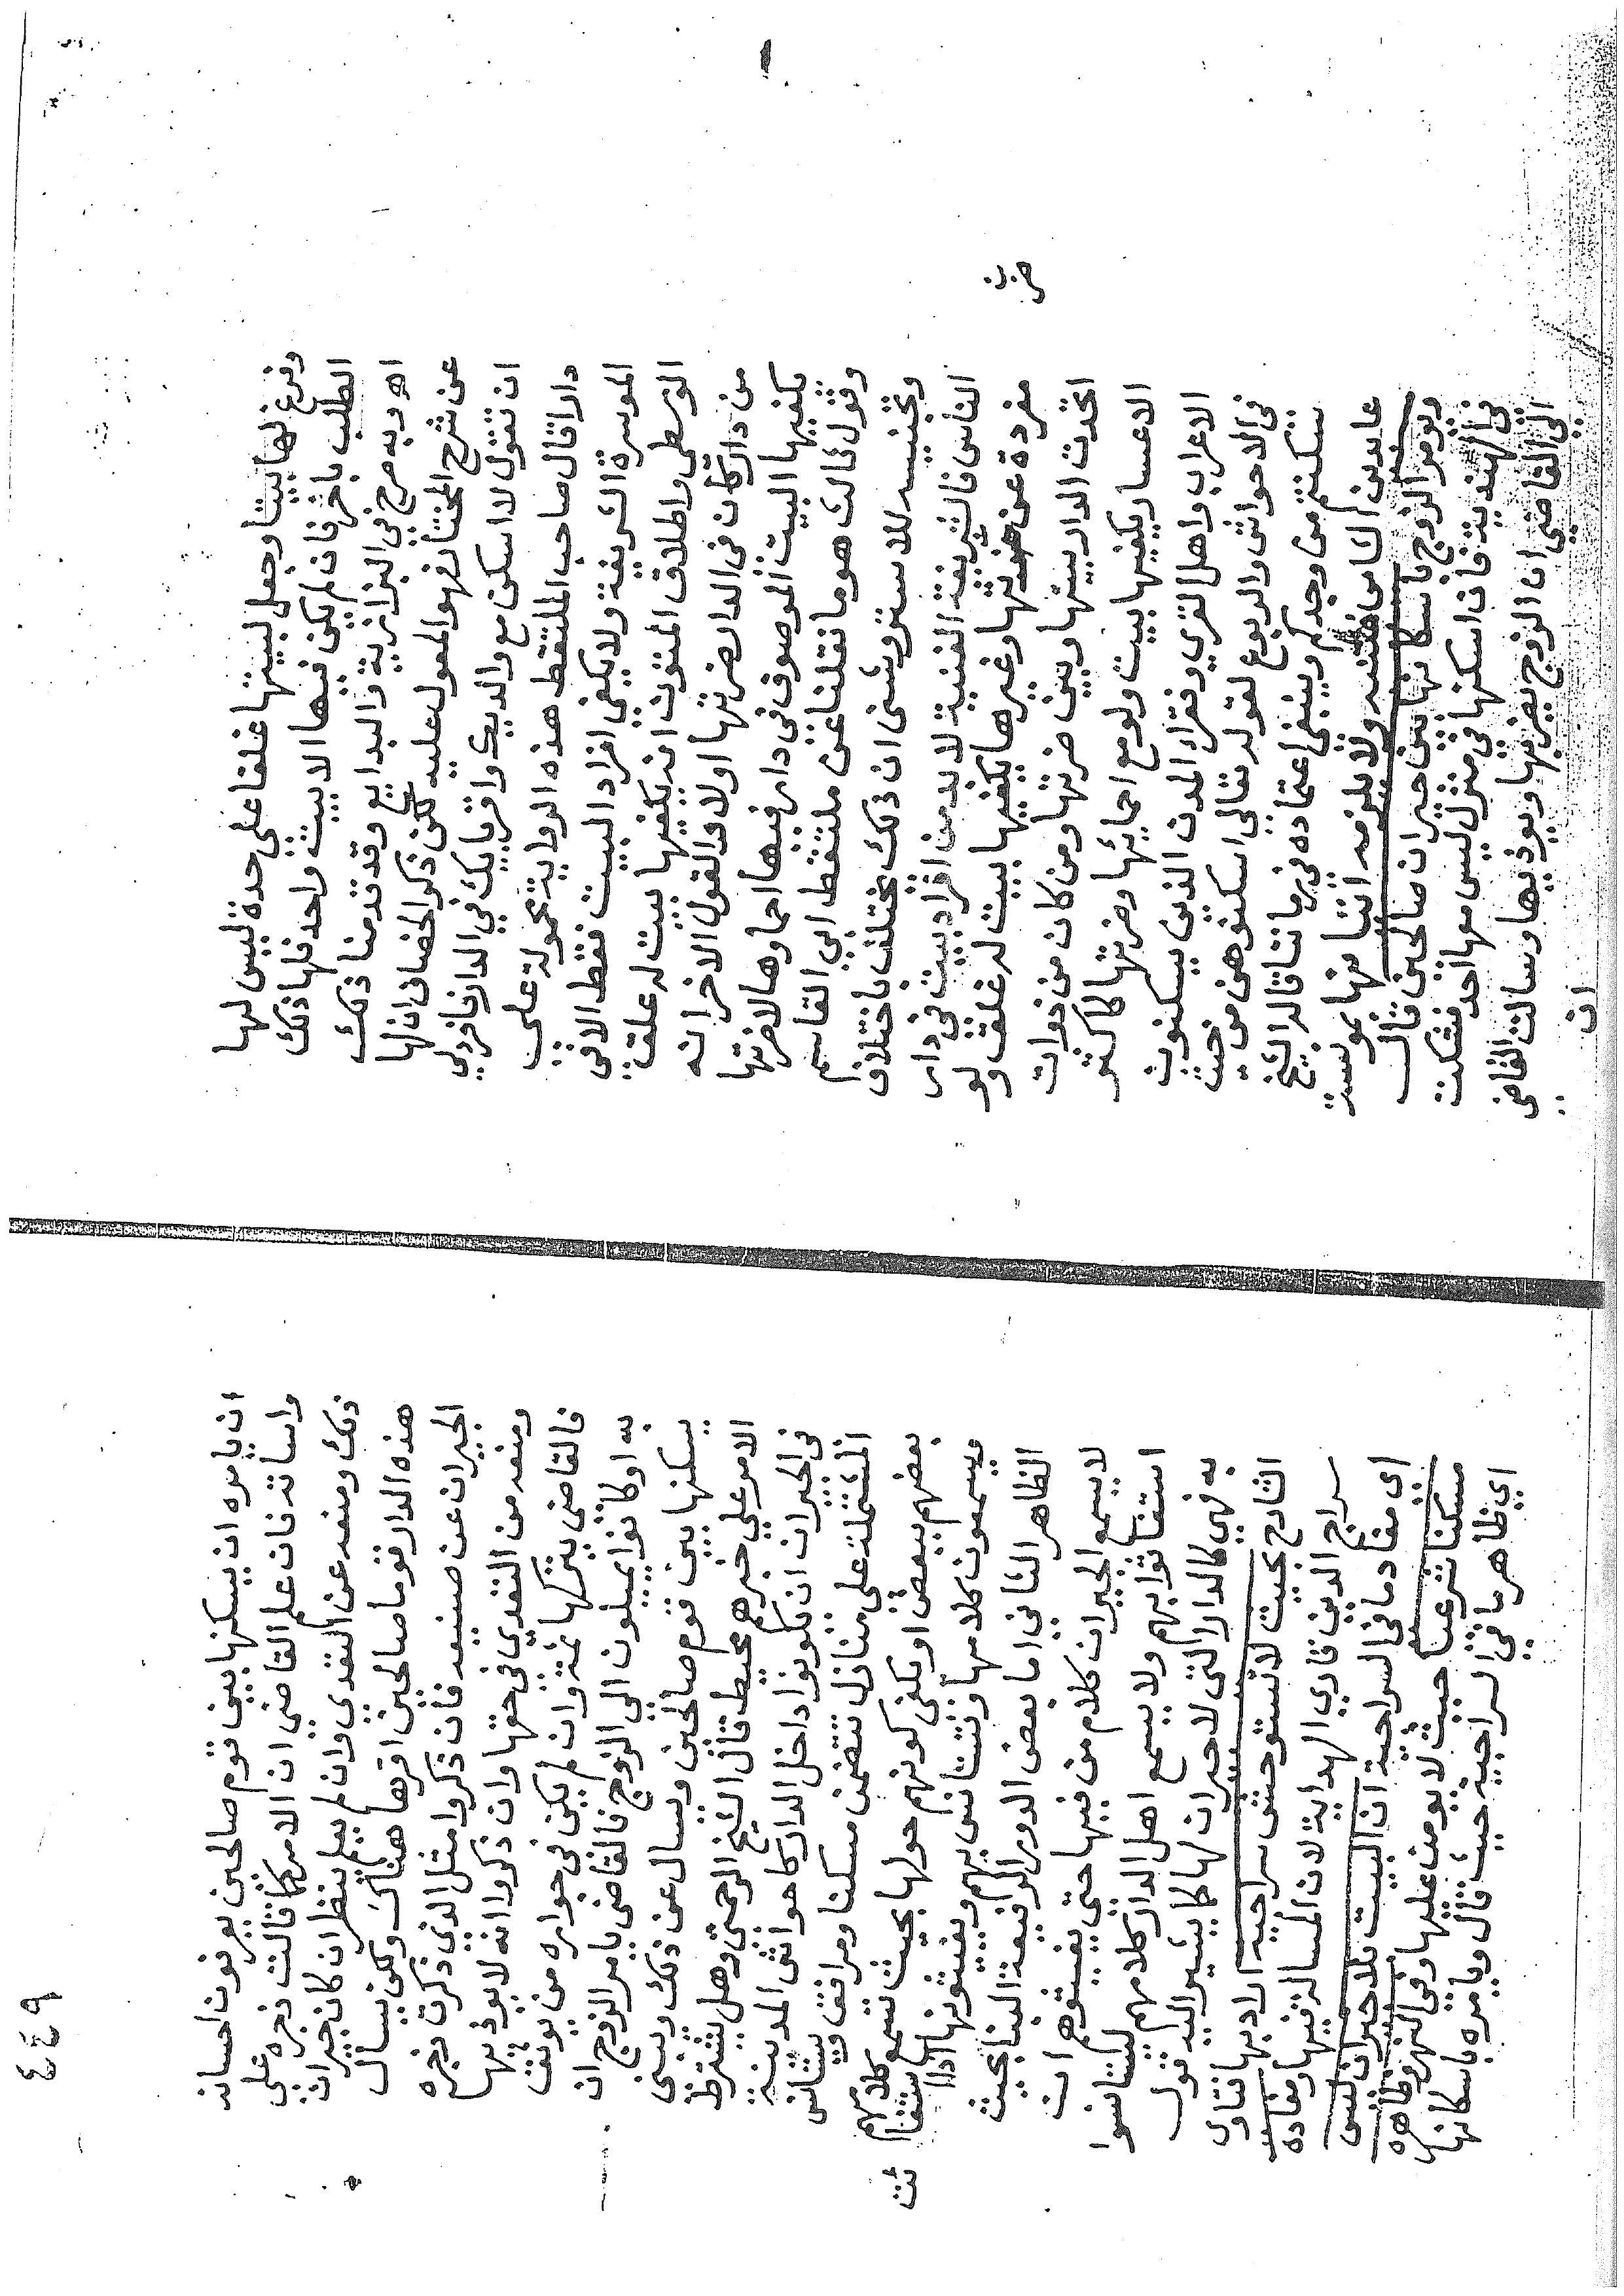 وفرغ لها بيتا وجعل لبيتها غلقا على حدة ليس لها
الطلب باخر فان لم يكن فيها الا بيت واحد فلها ذلك
اهـ وبه صرح في البزازية والبدايع وقد قدمنا ذلك
عن شرح المختار فهو المعول عليه لكن ذكر الخصاف ان لها
ان تقول لا اسكن مع والديك واقربايك في الدار فافرد لي
دارا قال صاحب الملتقط هذه الرواية محمولة على
الموسرة الشريفة ولا يكفي افراد البيت فقط الا في
الوسطى واطلاق المتون انه يكفيها بيت له غلق
من دار كان في الدار ضرتها اولا والقول الاخر انه
يكفيها البيت الموصوف في دار فيها احماوها لا ضرتها
وقول ثالث هو ما نقلنا عن ملتقط ابي القاسم
وتجنيسه للاستروشنى ان ذلك يختلف باختلاف
الناس فالشريفة الغنية لا بد من افراد بيت في دار
مفردة عن ضرتها وغيرها يكفيها بيت له غلق ولو
اتحدت الدار بينها وبين ضرتها ومن كان من ذوات
الاعسار يكفيها بيت ولو مع احمائها وضرتها كاكثر
الاعراب واهل القري وفقراء المدن الذين يسكنون
في الاحواش والربوع لقوله تعالى اسكنوهن من حيث
سكنتم من وجدكم وينبغي اعتماده في زماننا قاله الشيخ
عابدين الشامي ولا يلزمه اتيانها بمونسة
ويومر الزوج باسكانها بين جيران صالحين قال
في الهندية فان اسكنها في منزل ليس معها احد فشكت
الى القاضي ان الزوج يضربها ويوذيها وسالت القاضي
ان
٤٤٩
ان يامره ان يسكنها بين قوم صالحين يعرفون احسانه
واساته فان علم القاضي ان الامر كما قالت زجره على
ذلك ومنعه عن التعدي وان لم يعلم ينظر ان كان جيران
هذه الدار قوما صالحين اقرها هناك ولكن يسال
الجيران عن صنيعه فان ذكروا مثل الذي ذكرت زجره
ومنعه من التعدي في حقها وان ذكروا انه لا يوذيها
فالقاضي يتركها ثمة وان لم يكن في جواره من يوثق
به او كانوا يميلون الي الزوج فالقاضي يامر الزوج ان
يسكنها بين قوم صالحين ويسال عن ذلك ويبنى
الامر على خبرهم محيط قال الشيخ الرحمتي وهل يشترط
في الجيران ان يكونوا داخل الدار كاحواش المدينة
المشتملة على منازل تتضمن مسكنا ومرافق ويستانس
بعضهم ببعض او يكفى كونهم حولها بحيث تسمع كلامهم
ويسمعون كلامها وتستانس بهم ويغيثونها اذا استغاثت
الظاهر الثاني اما بعض الدور الرفيعة البنا بحيث
لا يسمع الجيران كلام من فيها حتى يغيثوهم ان
استغاثوا بهم ولا يسمع اهل الدار كلامهم ليستانسوا
به فهي كالدار التي لا جيران لها كما يشير اليه قول
الشارح بحيث لا تستوحش سراجيه اراد بها فتاوى
سراج الدين قاري الهداية لان المسالة فيها ومفاده
اي مفاد ما في السراجية ان البيت بلا جيران ليس
مسكنا شرعيا حيث لا يومن عليها وفي النهر وظاهره
اي ظاهر ما في السراجية حيث قال ويامره باسكانها